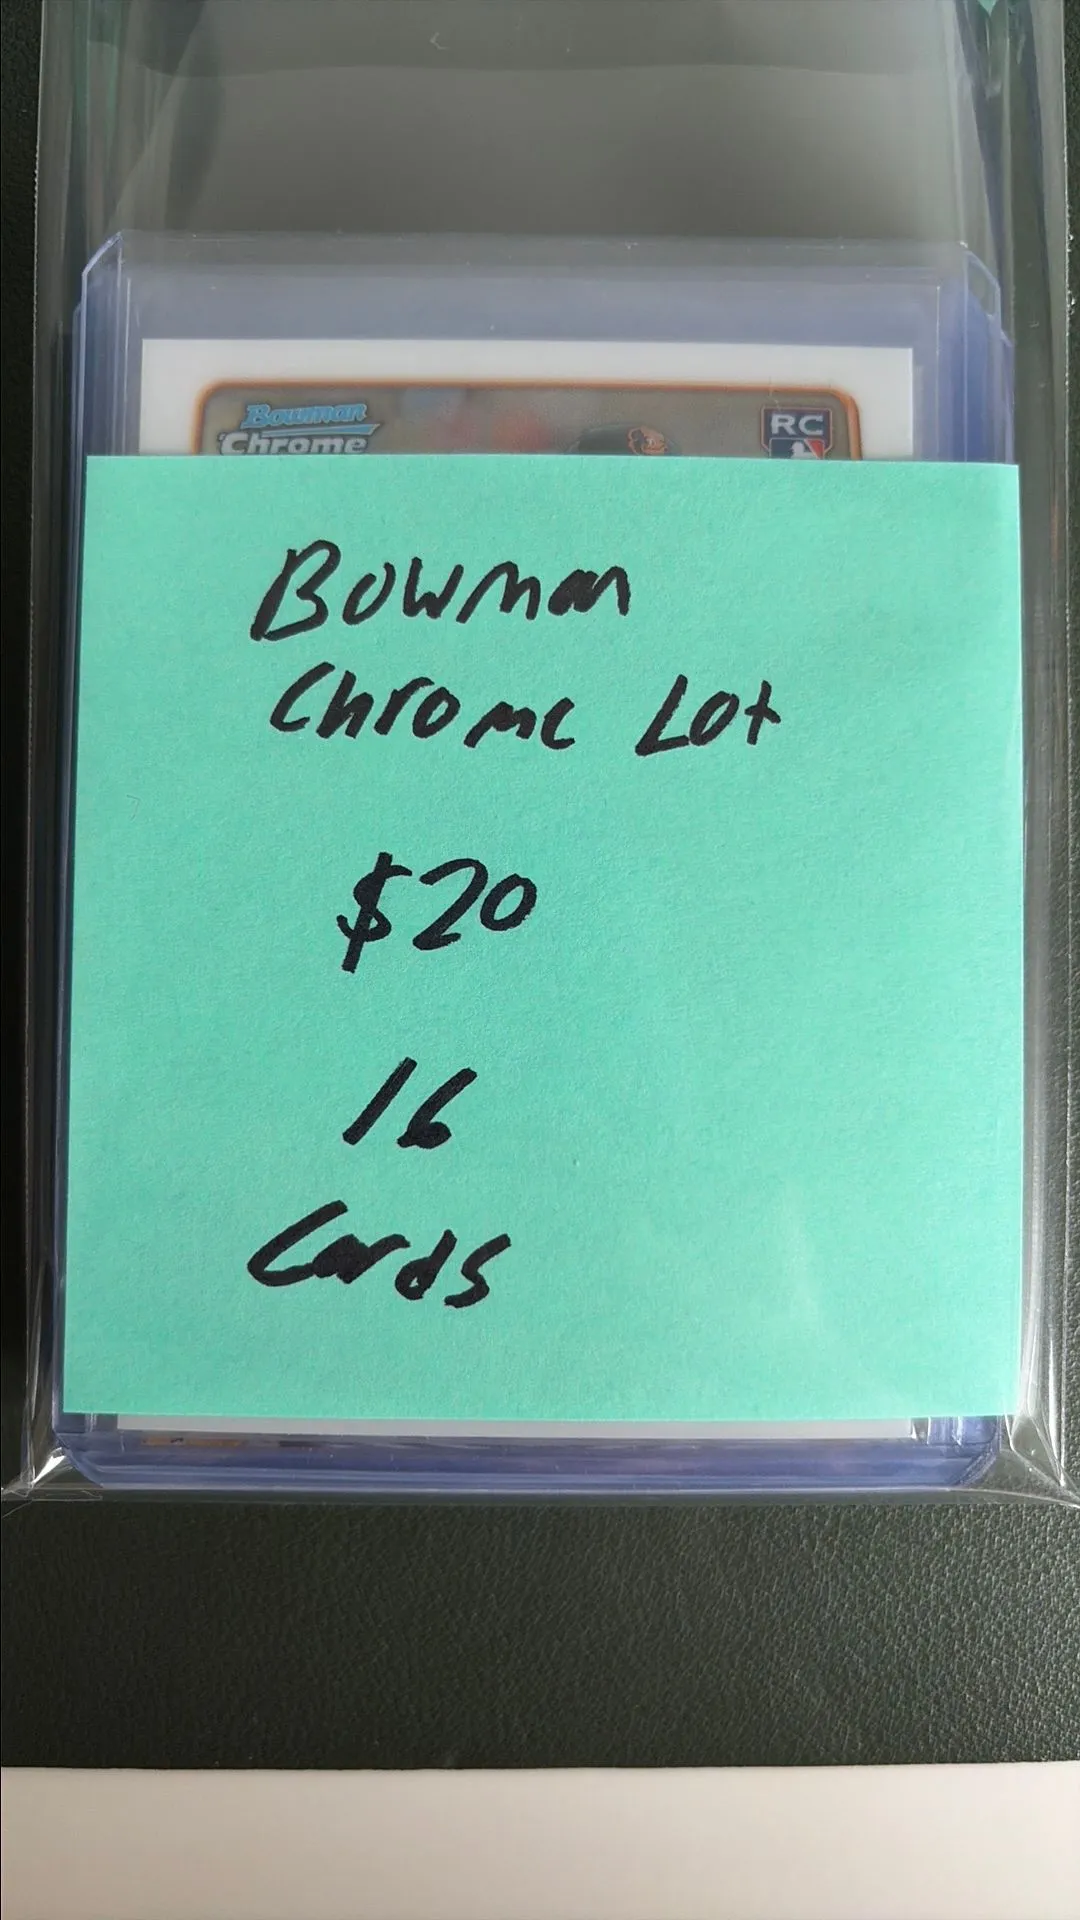 Bowman
Chrome
RC
Bowman
Chrome Lot
$20
16
Cards